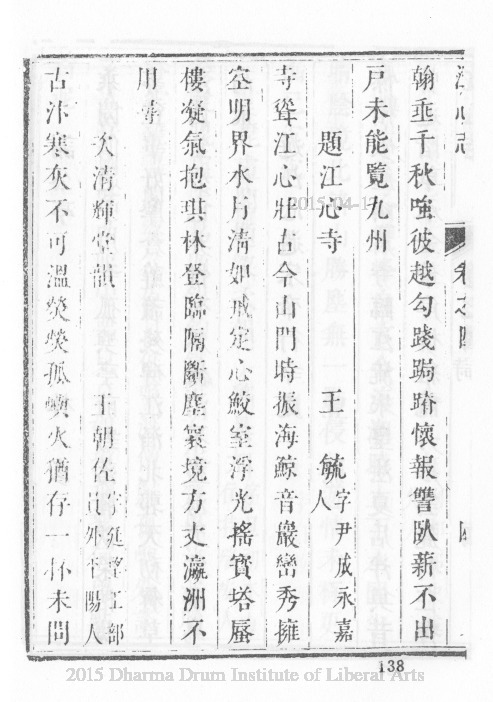 江心志 卷之四 四
翰垂千秋嗤彼越勾踐跼蹐懷報讐臥薪不出
戶未能覽九州
題江心寺 王毓 字尹成永嘉人
寺聳江心壯古今山門時振海鯨音巖巒秀擁
空明界水月清如戒定心鮫室浮光搖寶塔蜃
樓凝氣抱琪林登臨隔斷塵寰境方丈瀛洲不
用尋
次清輝堂韻 王朝佐 字廷望工部員外平陽人
古汴寒灰不可溫熒熒孤嶼火猶存一抔未問
138
2015-04-1
2015 Dharma Drum Institute of Liberal Arts